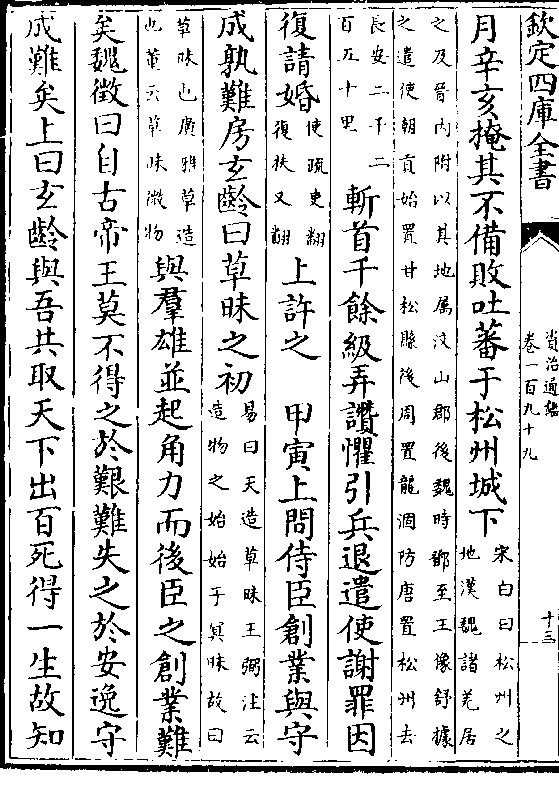 欽定四庫全書
資治通鑑
卷一百九十九
十三
月辛亥掩其不備敗吐蕃于松州城下
宋白曰松州之
地漢魏諸羌居
之及晉内附以其地属汶山郡後魏時鄧至王像舒據
之遣使朝貢始置甘松縣後周置龍涸防唐置松州去
長安二千二
百五十里
斬首千餘級弄讚懼引兵退遣使謝罪因
復請婚
使疏吏翻
復扶又翻
上許之　甲寅上問侍臣創業與守
成孰難房玄齡曰草昧之初
易曰天造草昧王弼注云
造物之始始于冥昧故曰
草昧也廣雅草造
也董云草昧微物
與羣雄並起角力而後臣之創業難
矣魏徵曰自古帝王莫不得之於艱難失之於安逸守
成難矣上曰玄齡與吾共取天下出百死得一生故知